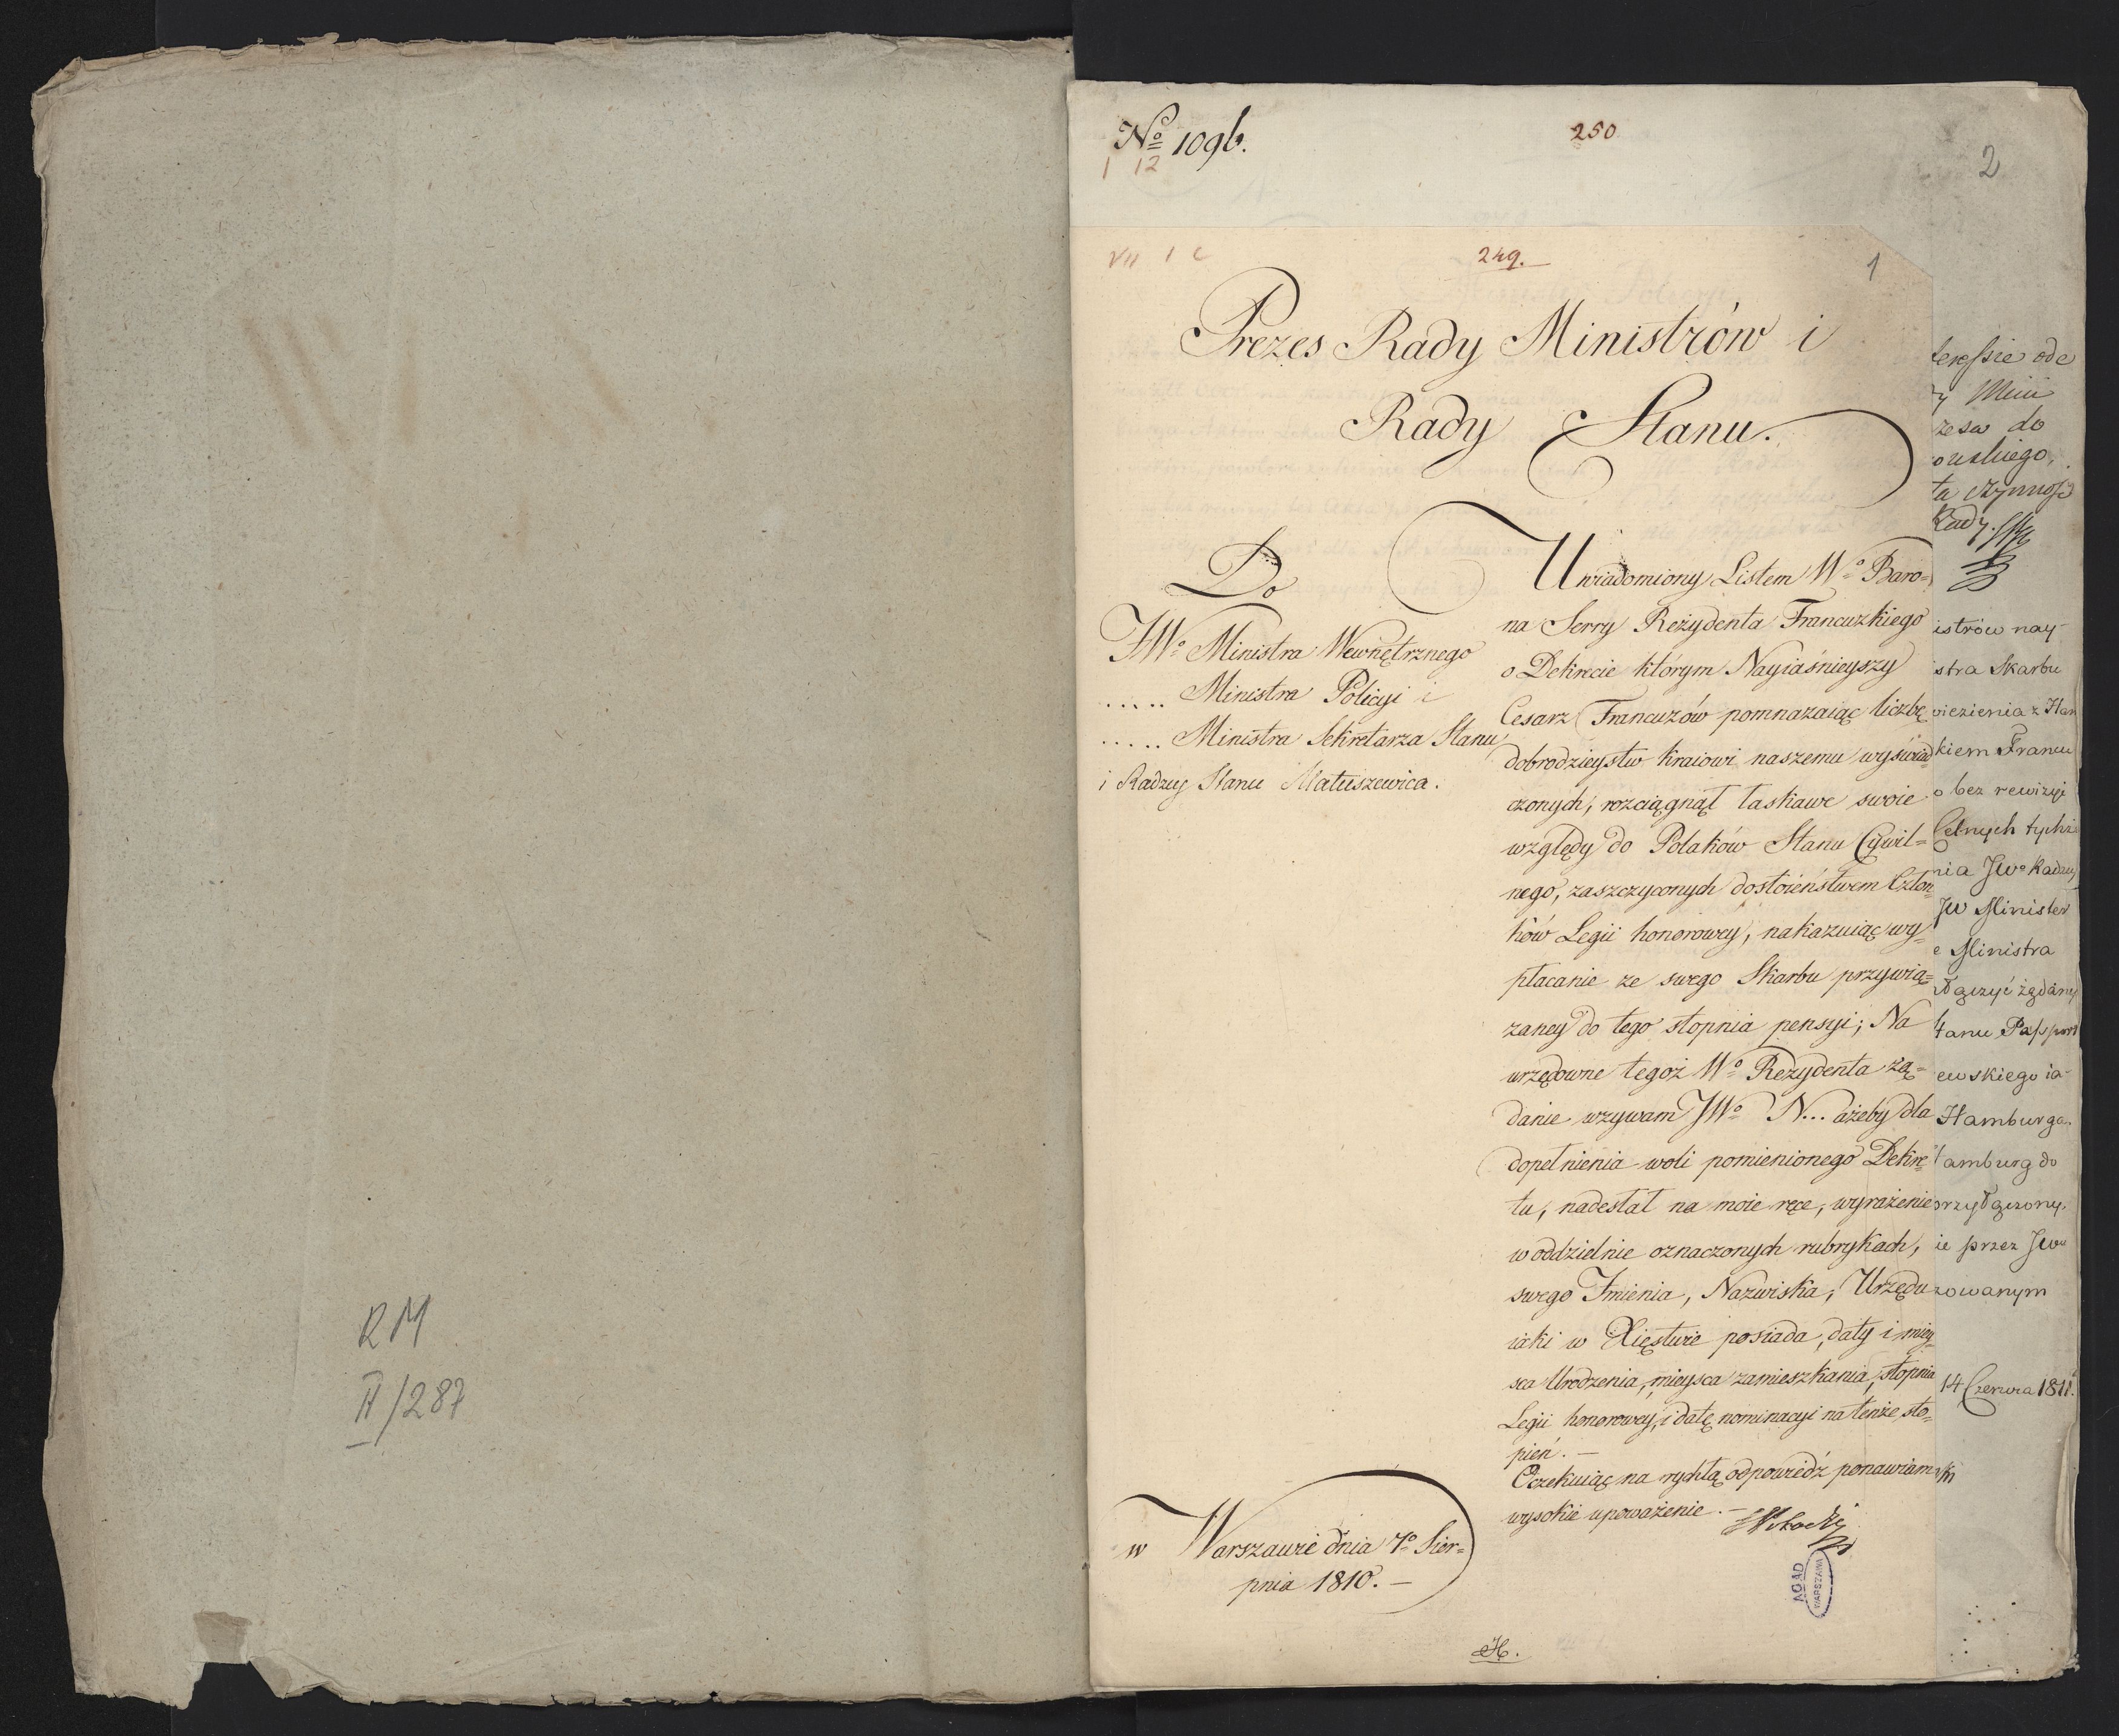 RM
II/287
No 1096.
1 12
250
2
VII 1 c
249.
1
Prezes Rady Ministrów i
Rady Stanu.
Do
JWo Ministra Wewnętrznego
..... Ministra Policyi i
..... Ministra Sekretarza Stanu
i Radzcy Stanu Matuszewica.
Uwiadomiony Listem Wo Baro=
na Serry Rezydenta Francuzkiego
o Dekrecie którym Nayiaśnieyszy
Cesarz Francuzów pomnażaiąc liczbę
dobrodzieystw kraiowi naszemu wyświad=
czonych, rozciągnął łaskawe swoie
względy do Polaków Stanu Cywil=
nego, zaszczyconych dostoieństwem Człon
ków Legii honorowey, nakazuiąc wy=
płacanie ze swego Skarbu przywią=
zaney do tego stopnia pensyi; Na
urzędowne tegoż Wo Rezydenta żą=
danie wzywam JWo N... ażeby dla
dopełnienia woli pomienionego Dekre
tu, nadesłał na moie ręce, wyrażenie
w oddzielnie oznaczonych rubrykach,
swego Imienia, Nazwiska, Urzędu
iaki w Xięstwie posiada, daty i miey
sca Urodzenia, mieysca zamieszkania, stopnia
Legii honorowey, i datę nominacyi na tenże sto=
pień. —
Oczekuiąc na rychłą odpowiedź ponawiam
wysokie upoważenie. —
w Warszawie dnia 7o Sier=
pnia 1810. —
AGAD
WARSZAWA
ode
do
Rady.
istrów nay-
stra Skarbu
wiezienia z Ham
kiem Francu
o bez rewizyi
Celnych tychże
nia JWo Radzcy
JW Minister
e Ministra
łączyć żądany
tanu Passport
ewskiego ia-
Hamburga
Hamburg do
przyłączony.
ie przez JWo
zowanym
14 Czerwca 1811.